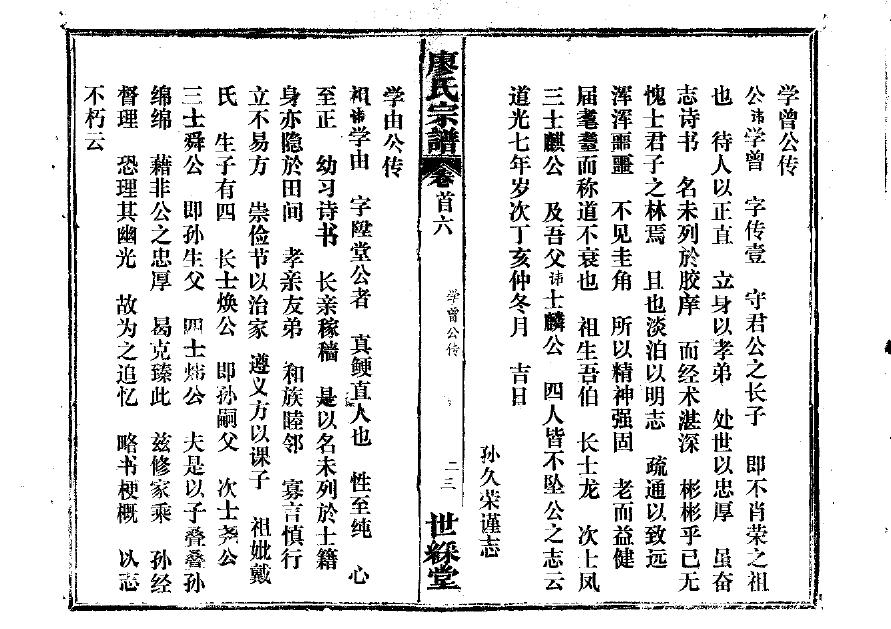 学曾公传
公讳学曾 字传壹 守君公之长子 即不肖荣之祖
也 待人以正直 立身以孝弟 处世以忠厚 虽奋
志诗书 名未列於胶庠 而经术湛深 彬彬乎已无
愧士君子之林焉 且也淡泊以明志 疏通以致远
浑浑噩噩 不见圭角 所以精神强固 老而益健
届耄耋而称道不衰也 祖生吾伯 长士龙 次士凤
三士麒公 及吾父讳士麟公 四人皆不坠公之志云
道光七年岁次丁亥仲冬月 吉日
孙久荣谨志
廖氏宗譜
卷首六
学曾公传
二三
世綵堂
学由公传
祖讳学由 字陞堂公者 真鲠直人也 性至纯 心
至正 幼习诗书 长亲稼穑 是以名未列於士籍
身亦隐於田间 孝亲友弟 和族睦邻 寡言慎行
立不易方 崇俭节以治家 遵义方以课子 祖妣戴
氏 生子有四 长士焕公 即孙嗣父 次士尧公
三士舜公 即孙生父 四士炳公 夫是以子叠叠孙
绵绵 藉非公之忠厚 曷克臻此 兹修家乘 孙经
督理 恐理其幽光 故为之追忆 略书梗概 以志
不朽云